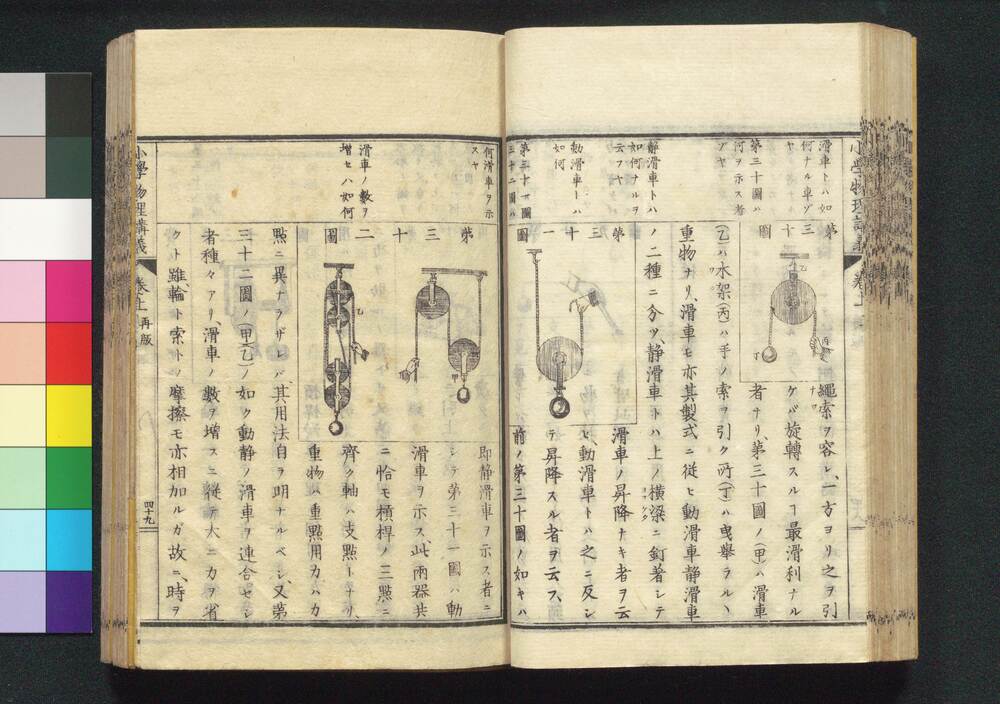 小學物理講義 卷上
滑車トハ如
何ナル車ゾ
ヤ
第三十圖ハ
何ヲ示ス者
ゾヤ
靜滑車トハ
如何ナルヲ
云フヤ
動滑車トハ
如何
第三十一圖
三十二圖ハ
第三十圖
繩索ヲ容レ、一方ヨリ之ヲ引
ケバ旋轉スルヿ最滑利ナル
者ナリ、第三十圖ノ(甲)ハ滑車
(乙)ハ木架(丙)ハ手ノ索ヲ引ク所(丁)ハ曳擧ラルヽ
重物ナリ、滑車モ亦其製式ニ從ヒ動滑車靜滑車
ノ二種ニ分ツ、靜滑車トハ上ノ橫梁ニ釘著シテ
第三十一圖
滑車ノ昇降ナキ者ヲ云
ヒ、動滑車トハ之ニ反シ
テ昇降スル者ヲ云フ、
前ノ第三十圖ノ如キハ
何滑車ヲ示
スヤ
滑車ノ數ヲ
增セハ如何
即靜滑車ヲ示ス者ニ
シテ第三十一圖ハ動
滑車ヲ示ス、此兩器共
ニ恰モ槓桿ノ三點ニ
齊ク軸ハ支點トナリ、
重物ハ重點用力ハ力
第三十二圖
點ニ異ナラザレバ、其用法自ラ明ナルベシ、又第
三十二圖ノ(甲乙)ノ如ク動靜ノ滑車ヲ連合セシ
者種々アリ、滑車ノ數ヲ增スニ從テ大ニ力ヲ省
クト雖、輪ト索トノ摩擦モ亦相加ルガ故ニ、時ヲ
小學物理講義 卷上 再版
四十九